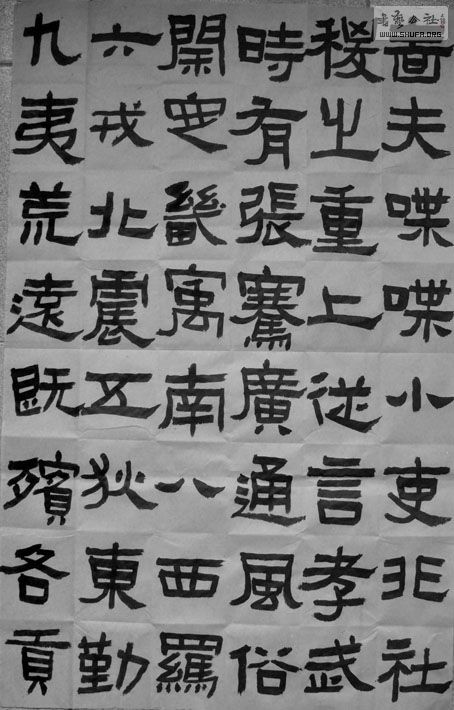 嗇夫喋喋小吏非社
稷之重上從言孝武
時有張騫廣通風俗
開定畿寓南八西羈
六戎北震五狄東勤
九夷荒遠既殯各貢
書藝公社
WWW.SHUFA.ORG